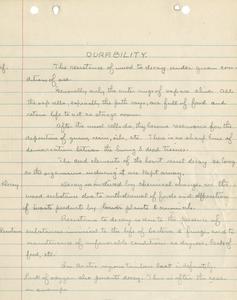 DURABILITY.
The resistance of wood to decay under given con-
ditions of use.
Generally only the outer rings of sap are alive. All
the sap cells, especially the pith rays, are full of food and
retain life to act as storage rooms.
After the wood cells die they become reservoirs for the
deposition of gums, resins, oils, etc. There is no sharp line of
demarcation between the living & dead tissues.
The dead elements of the heart resist decay as long
as the organisms inducing it are kept away.
Decay
Decay is induced by chemical changes in the
wood substance due to withdrawal of foods and
of waste product by lower plants & animals.
Resistance to decay is due to the presence of
substances inimical to the life of bacteria & fungi, and to
maintenance of unfavorable conditions as dryness, lack of
food, etc.